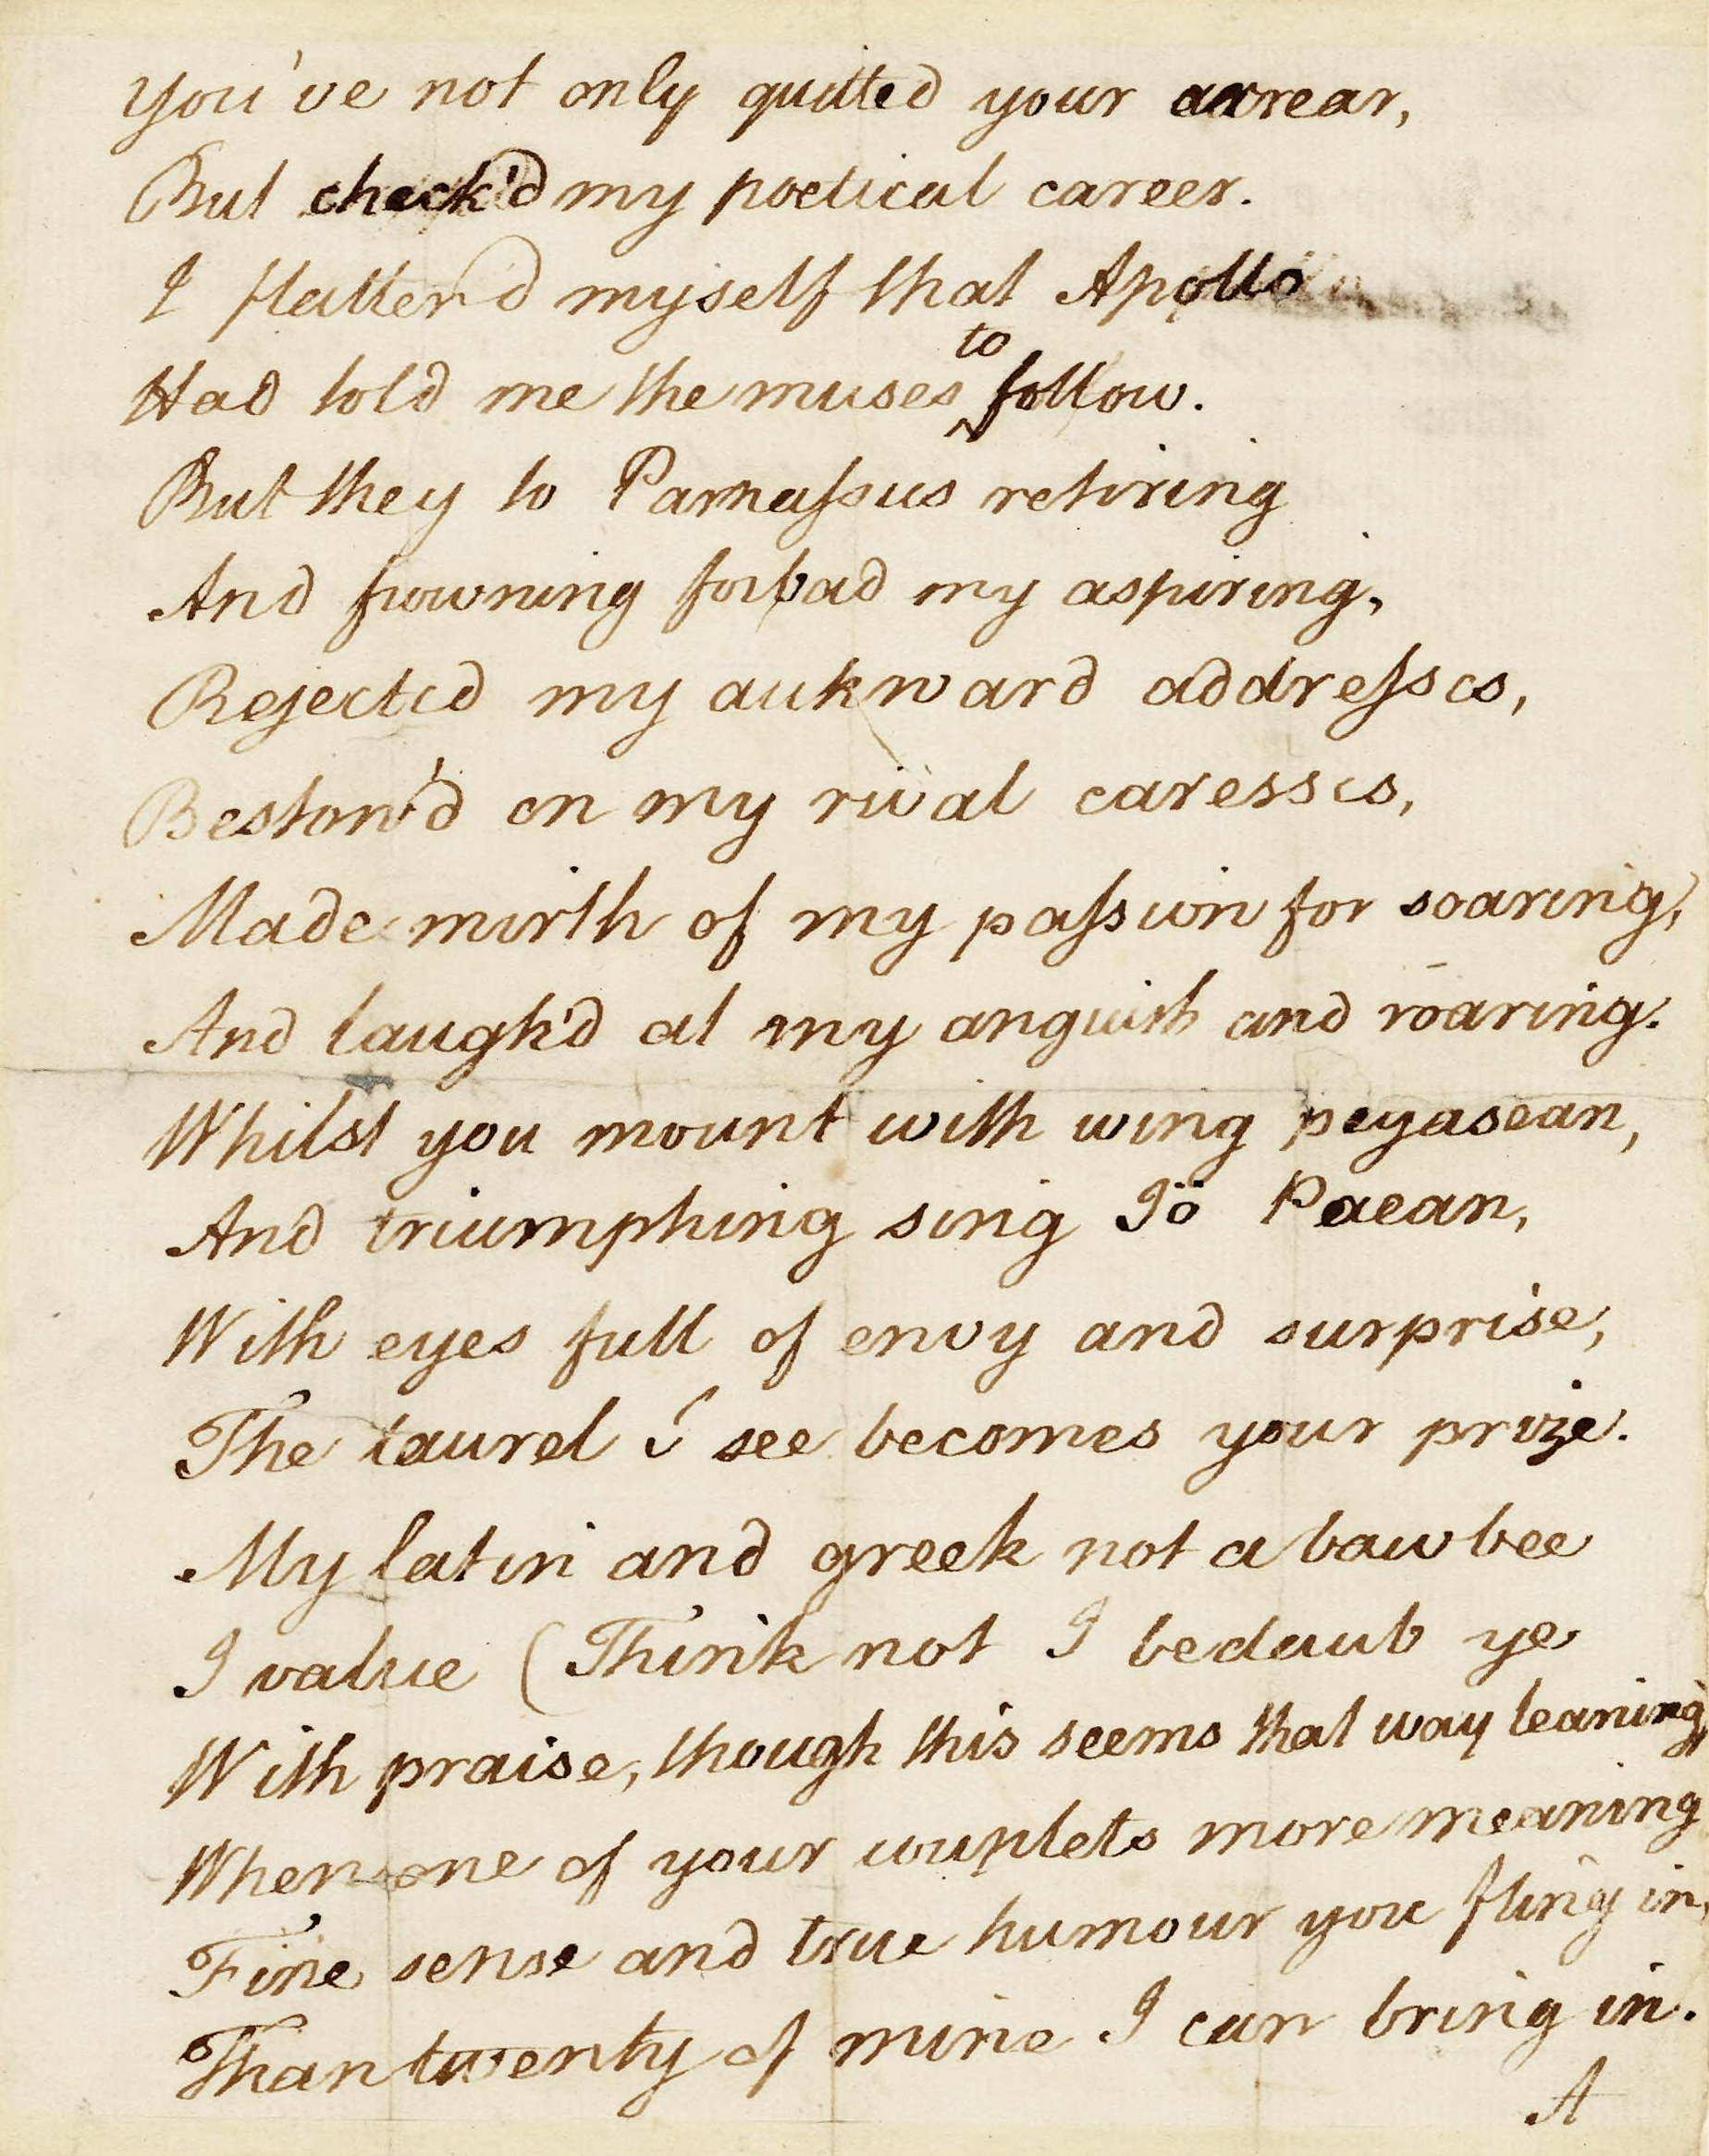 You've not only quitted your arrear,
But check'd my poetical career.
I flatter'd myself that Apollo
to
Had told me the muses ‸ follow.
But they to Parnaſsus retiring
And frowning forbad my aspiring,
Rejected my aukward addreſses,
Bestow'd on my rival caresses,
Made mirth of my paſsion for soaring,
And laugh'd at my anguish and roaring.
Whilst you mount with wing pegasean,
And triumphing sing Iö Paean,
With eyes full of envy and surprise,
The laurel I see becomes your prize.
My latin and greek not a bawbee
I value (Think not I bedaub ye
With praise, though this seems that way leaning)
When one of your couplets more meaning
Fine sense and true humour you fling in,
Than twenty of mine I can bring in.
A